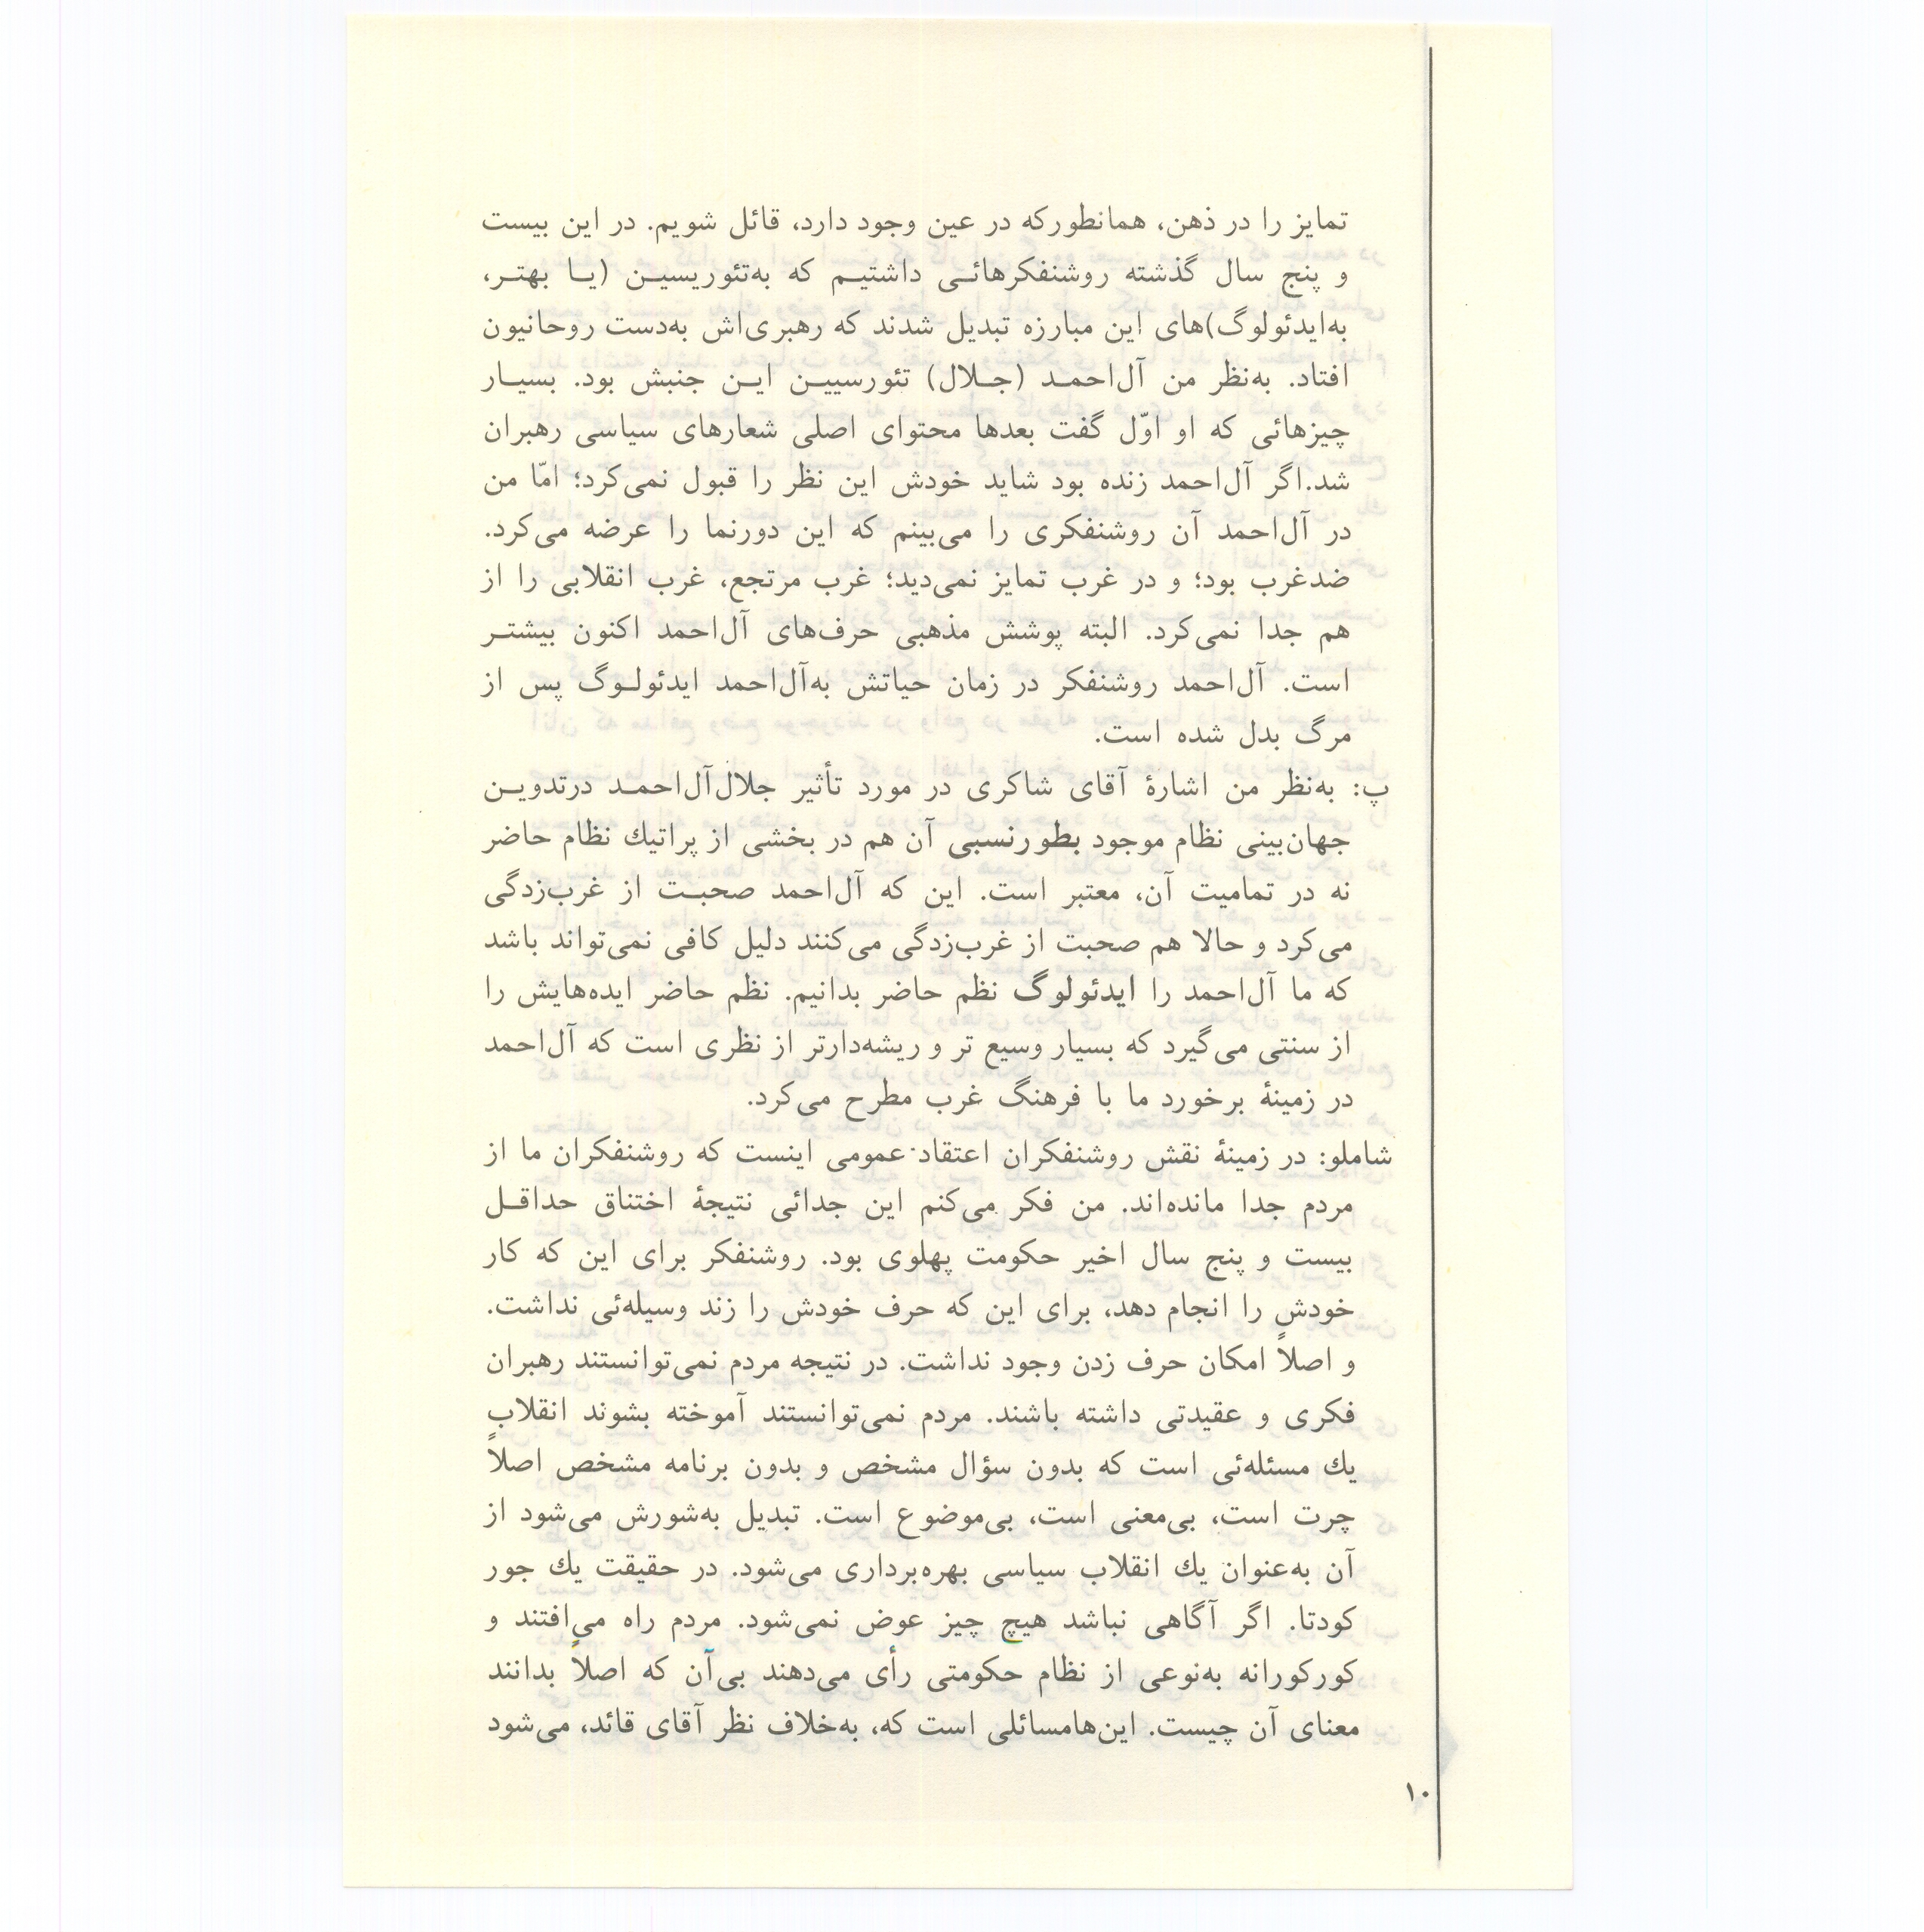 تمایز را در ذهن، همانطورکه در عین وجود دارد، قائل شویم. در این بیست
و پنج سال گذشته روشنفکرهائی داشتیم که به‌تئوریسین (یا بهتر،
به‌ایدئولوگ)های این مبارزه تبدیل شدند که رهبری‌اش به‌دست روحانیون
افتاد. به‌نظر من آل‌احمد (جلال) تئورسیین این جنبش بود. بسیار
چیزهائی که او اوّل گفت بعدها محتوای اصلی شعارهای سیاسی رهبران
شد.اگر آل‌احمد زنده بود شاید خودش این نظر را قبول نمی‌کرد؛ امّا من
در آل‌احمد آن روشنفکری را می‌بینم که این دورنما را عرضه می‌کرد.
ضدغرب بود؛ و در غرب تمایز نمی‌دید؛ غرب مرتجع، غرب انقلابی را از
هم جدا نمی‌کرد. البته پوشش مذهبی حرف‌های آل‌احمد اکنون بیشتر
است. آل‌احمد روشنفکر در زمان حیاتش به‌آل‌احمد ایدئولوگ پس از
مرگ بدل شده است.
پ: به‌نظر من اشارهٔ آقای شاکری در مورد تأثیر جلال‌آل‌احمد درتدوین
جهان‌بینی نظام موجود بطورنسبی آن هم در بخشی از پراتیك نظام حاضر
نه در تمامیت آن، معتبر است. این که آل‌احمد صحبت از غرب‌زدگی
می‌کرد و حالا هم صحبت از غرب‌زدگی می‌کنند دلیل کافی نمی‌تواند باشد
که ما آل‌احمد را ایدئولوگ نظم حاضر بدانیم. نظم حاضر ایده‌هایش را
از سنتی می‌گیرد که بسیار وسیع تر و ریشه‌دارتر از نظری است که آل‌احمد
در زمینهٔ برخورد ما با فرهنگ غرب مطرح می‌کرد.
شاملو: در زمینهٔ نقش روشنفکران اعتقاد عمومی اینست که روشنفکران ما از
مردم جدا مانده‌اند. من فکر می‌کنم این جدائی نتیجهٔ اختناق حداقل
بیست و پنج سال اخیر حکومت پهلوی بود. روشنفکر برای این که کار
خودش را انجام دهد، برای این که حرف خودش را زند وسیله‌ئی نداشت.
و اصلاً امکان حرف زدن وجود نداشت. در نتیجه مردم نمی‌توانستند رهبران
فکری و عقیدتی داشته باشند. مردم نمی‌توانستند آموخته بشوند انقلاب
یك مسئله‌ئی است که بدون سؤال مشخص و بدون برنامه مشخص اصلاً
چرت است، بی‌معنی است، بی‌موضوع است. تبدیل به‌شورش می‌شود از
آن به‌عنوان یك انقلاب سیاسی بهره‌برداری می‌شود. در حقیقت یك جور
کودتا. اگر آگاهی نباشد هیچ چیز عوض نمی‌شود. مردم راه می‌افتند و
کورکورانه به‌نوعی از نظام حکومتی رأی می‌دهند بی‌آن که اصلاً بدانند
معنای آن چیست. این‌هامسائلی است که، به‌خلاف نظر آقای قائد، می‌شود
۱۰